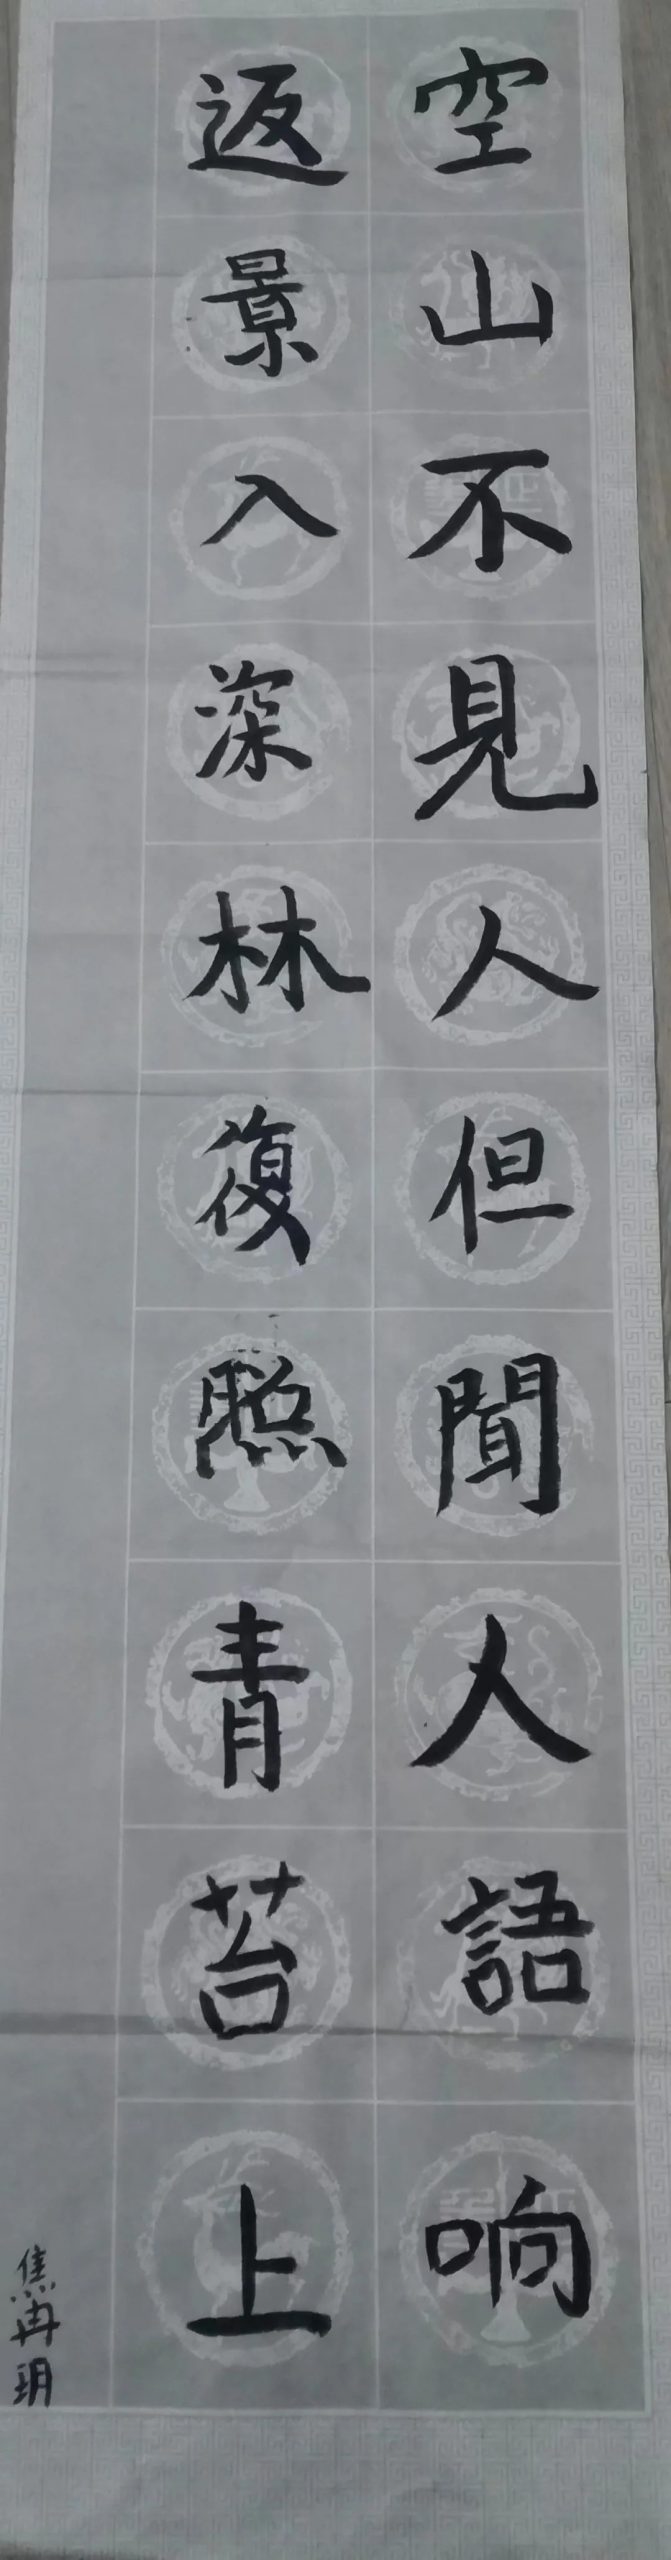 空山不見人但聞人語响
返景入深林復照青苔上
焦冉玥